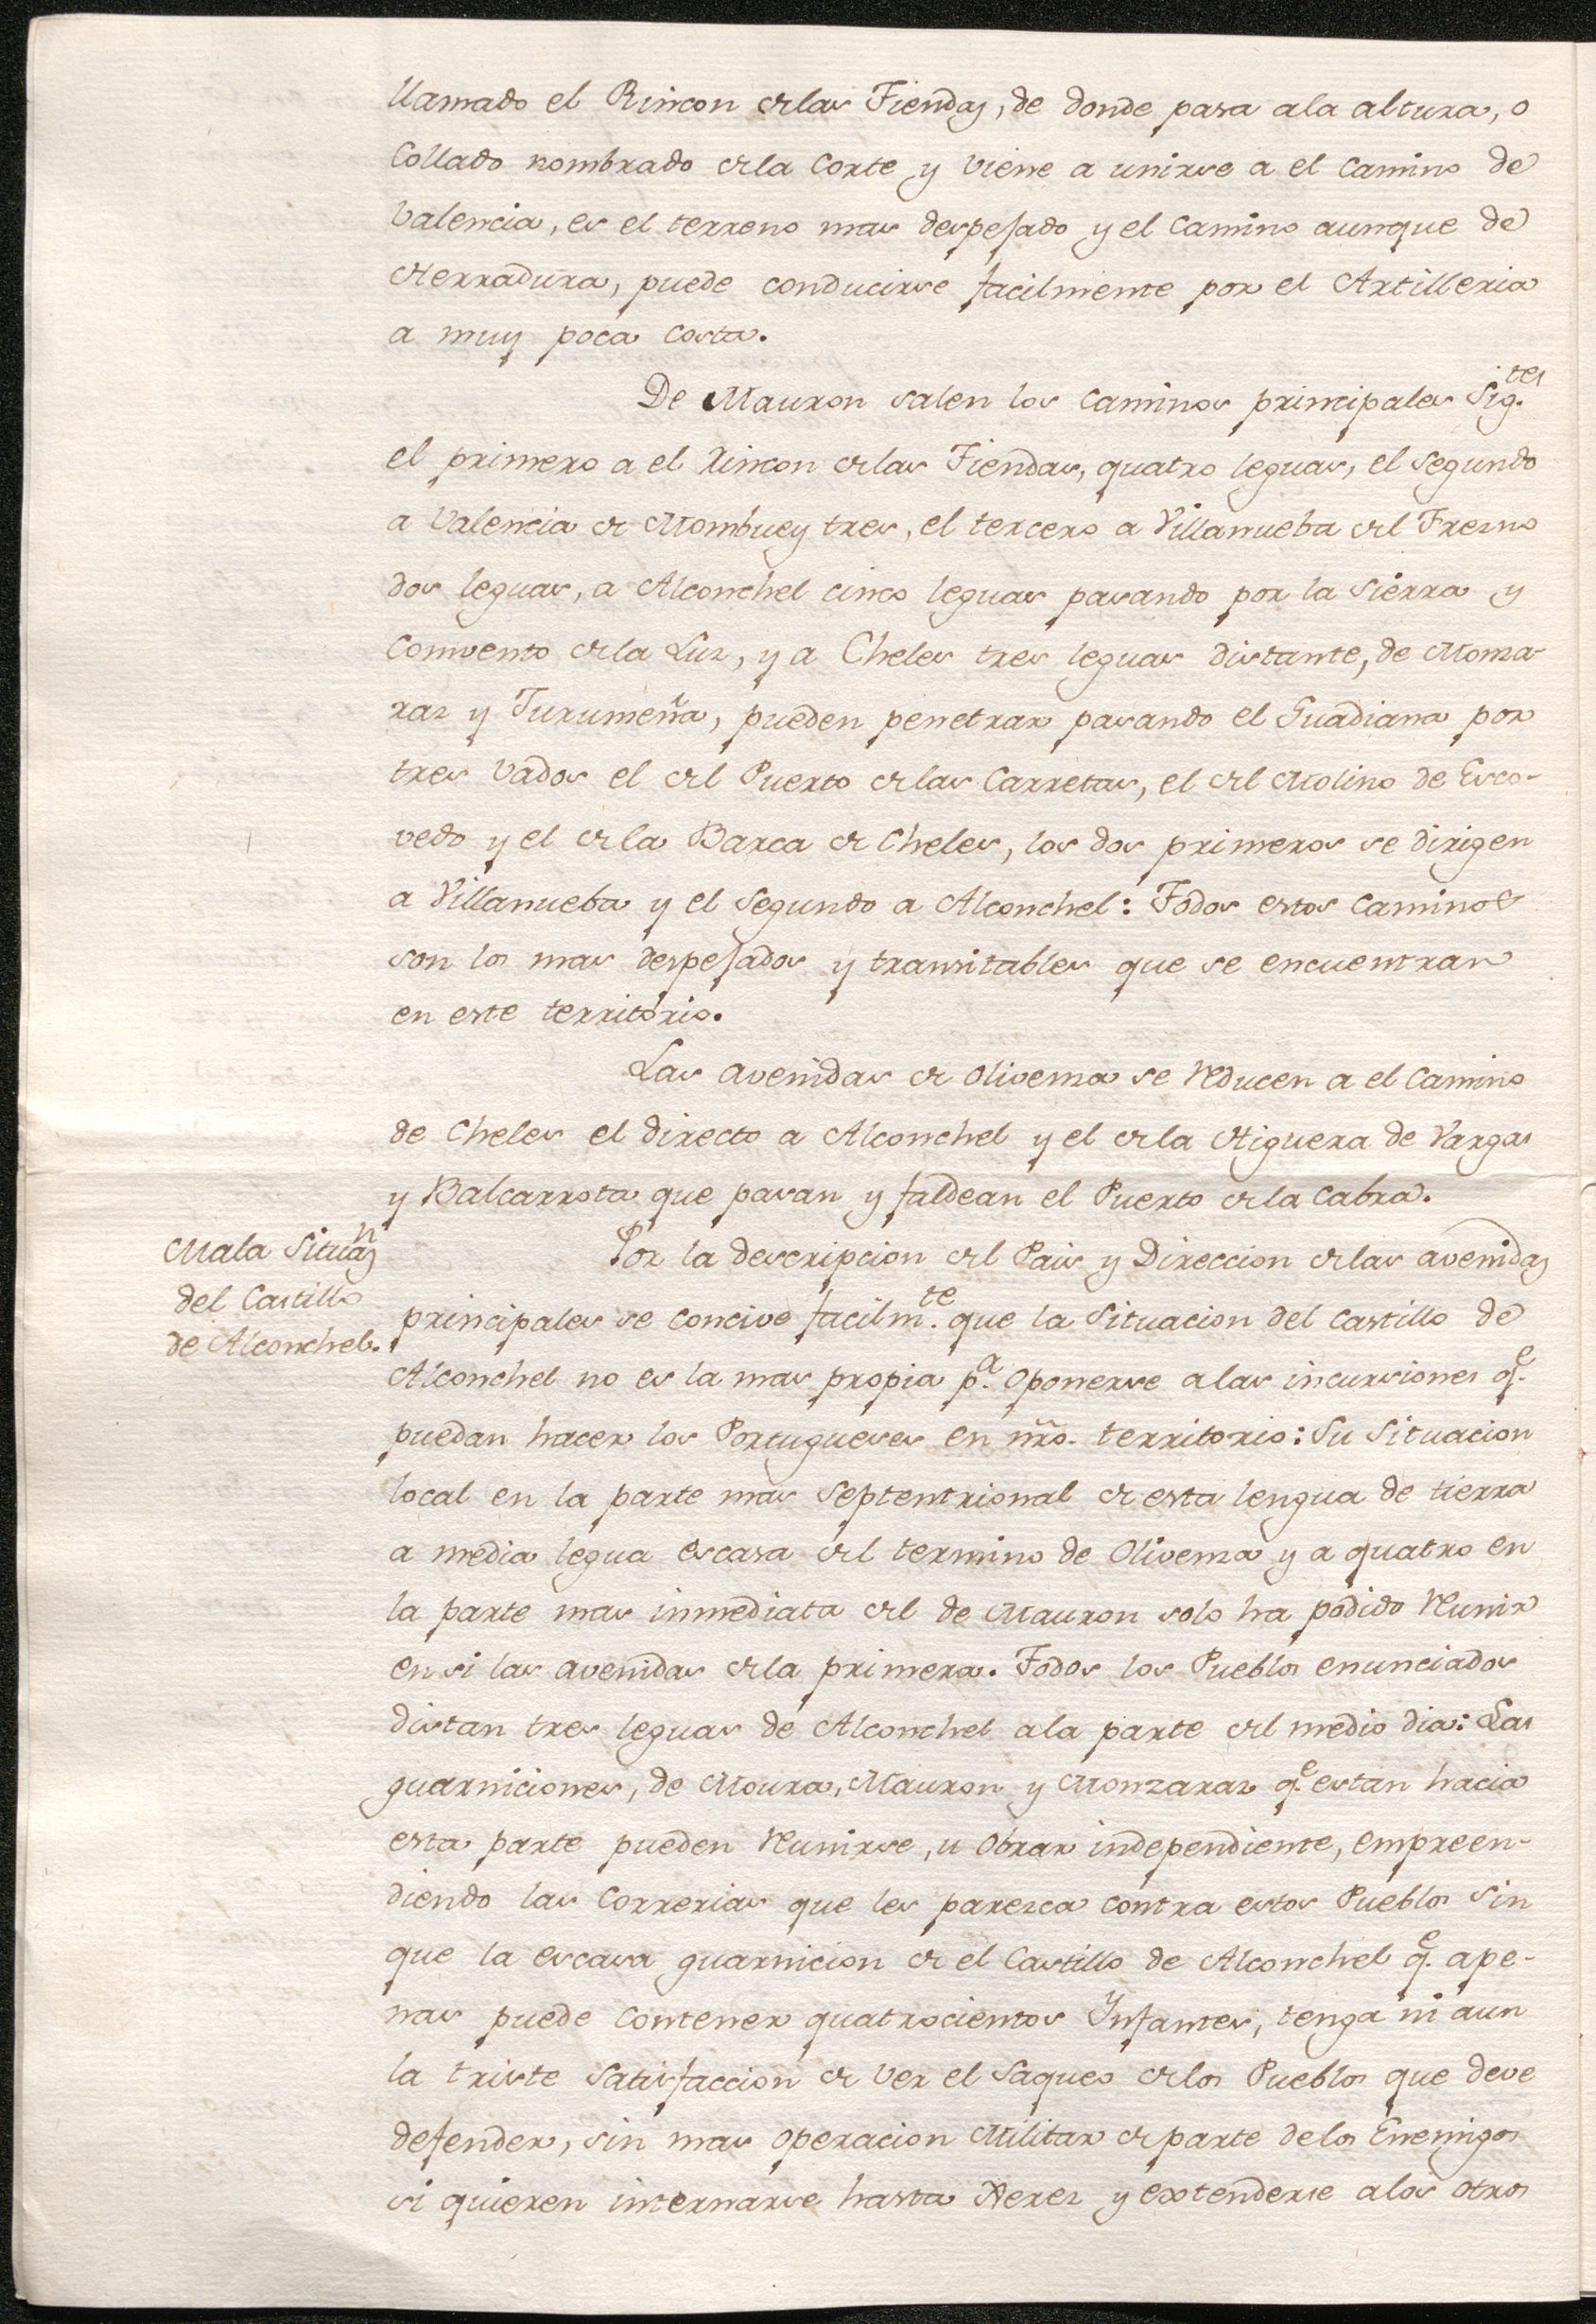 llamado el Rincon de las Tiendas, de donde pasa a la altura, o
Collado nombrado de la Corte y viene a unirse a el Camino de
Valencia, es el terreno mas despejado y el Camino aunque de
Herradura, puede conducirse facilmente por el Artilleria
a muy poca costa.
De Mauron salen los Caminos principales Sig.tes
el primero a el Rincon de las Tiendas, quatro leguas, el segundo
a Valencia de Mombuey tres, el tercero a Villanueba del Fresno
dos leguas, a Alconchel cinco leguas pasando por la Sierra y
Convento de la Luz, y a Cheles tres leguas distante, de Monza-
raz y Jurumeña, pueden penetrar pasando el Guadiana por
tres Vados el del Puerto de las Carretas, el del Molino de Esco-
vedo y el de la Barca de Cheles, los dos primeros se dirigen
a Villanueba y el Segundo a Alconchel: Todos estos Caminos
son los mas despejados y transitables que se encuentran
en este territorio.
Las avenidas de Olivenza se reducen a el Camino
de Cheles el directo a Alconchel y el de la Higuera de Vargas
y Balcarrota que pasan y faldean el Puerto de la Cabra.
Mala Situan
del Castillo
de Alconchel.
Por la descripcion del Pais y Direccion de las avenidas
principales se concive facilm.te que la Situacion del Castillo de
Alconchel no es la mas propia p.a oponerse a las incursiones q.e
puedan hacer los Portugueses en nro. territorio: Su Situacion
local en la parte mas Septentrional de esta lengua de tierra
a media legua escasa del termino de Olivenza y a quatro en
la parte mas inmediata del de Mauron solo ha podido reunir
en si las avenidas de la primera. Todos los Pueblos enunciados
distan tres leguas de Alconchel a la parte del medio dia: Las
guarniciones, de Moura, Mauron y Monzaraz q.e estan hacia
esta parte pueden reunirse, u obrar independiente, empreen-
diendo las Correrias que les parezca contra estos Pueblos Sin
que la escasa guarnicion de el Castillo de Alconchel q.e ape-
nas puede contener quatrocientos Ynfantes, tenga ni aun
la triste Satisfaccion de ver el Saqueo de los Pueblos que deve
defender, sin mas operacion Militar de parte de los Enemigos
si quieren internarse hasta Xerez y extenderse a los otros